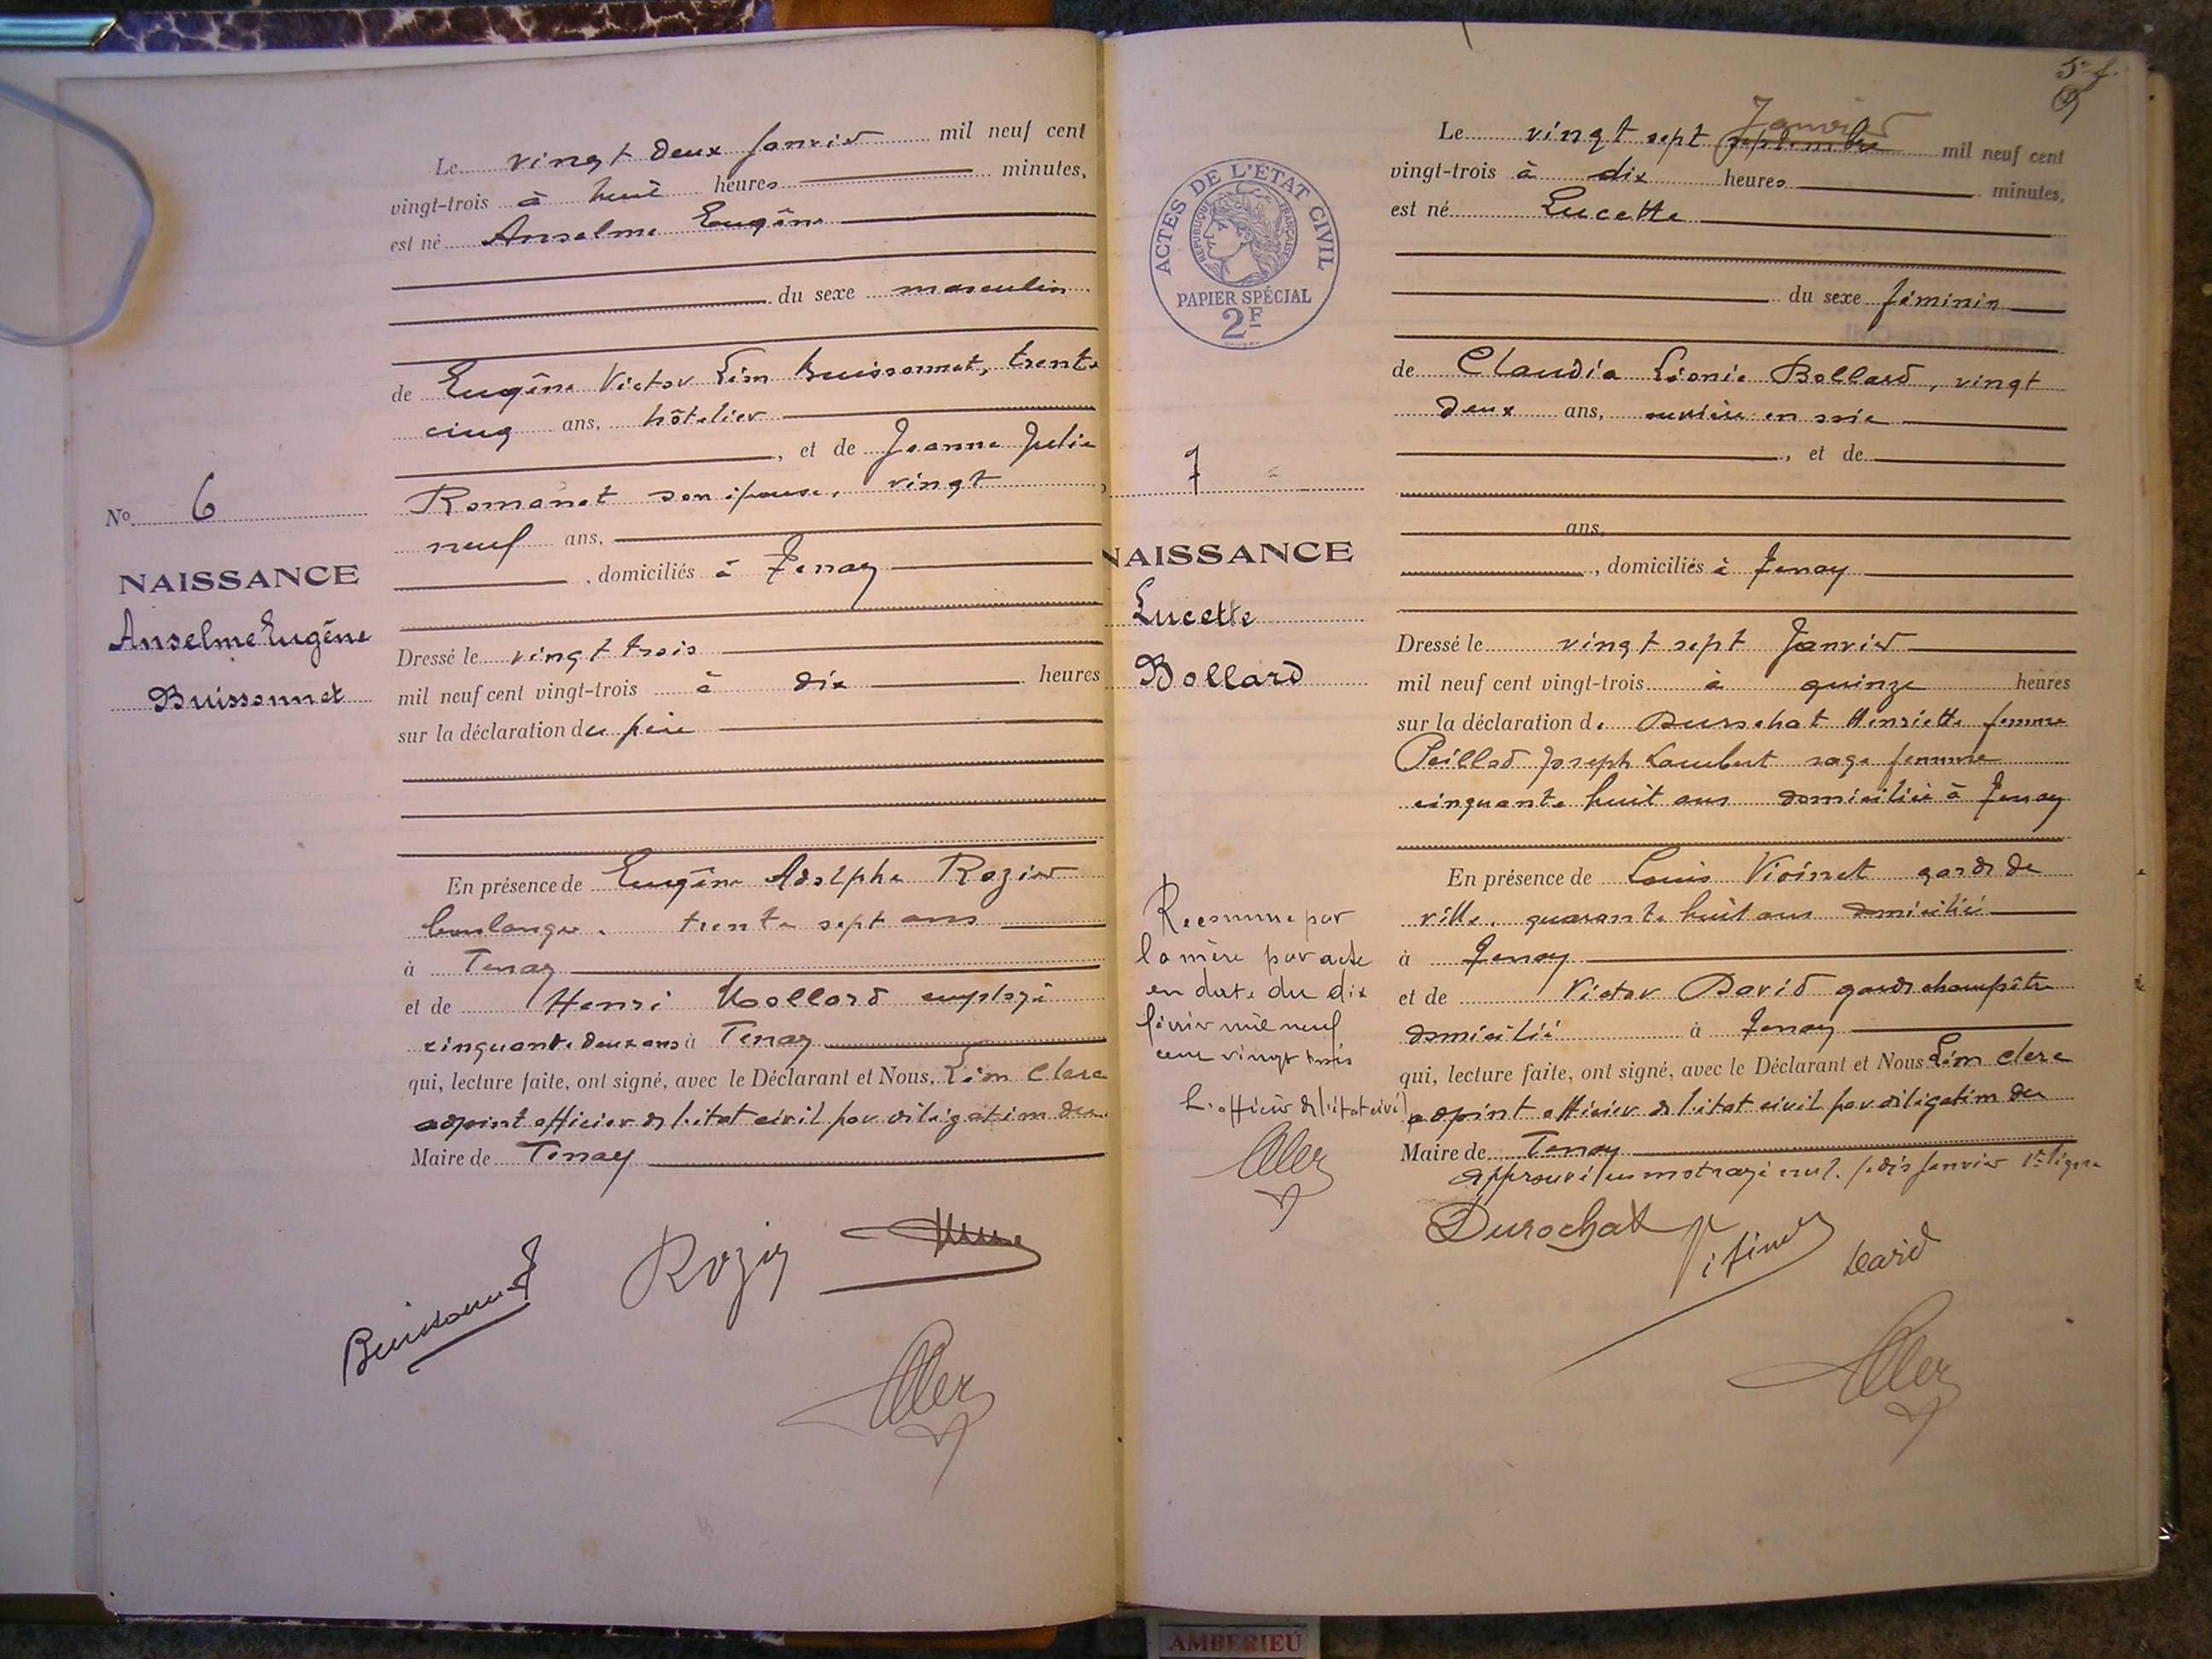 Le vingt deux Janvier mil neuf cent
vingt-trois à huit heures minutes,
est né Anselme Eugène
du sexe masculin
de Eugène Victor Léon Buissonnet, trente
cinq ans, hôtelier
, et de Jeanne Julie
Romanet son épouse, vingt
neuf ans,
, domiciliés à Tenay
No 6
NAISSANCE
Anselme Eugène
Buissonnet
Dressé le vingt trois
mil neuf cent vingt-trois à dix heures
sur la déclaration du père
En présence de Eugène Adolphe Rozier
boulanger, trente sept ans
à Tenay
et de Henri Mollard employé
cinquante deux ans à Tenay
qui, lecture faite, ont signé, avec le Déclarant et Nous, Léon Clerc
adjoint officier de l'état civil par délégation du
Maire de Tenay
Buissonnet
Rozier
5e f.
ACTES DE L'ÉTAT CIVIL
RÉPUBLIQUE FRANÇAISE
PAPIER SPÉCIAL
2F
Janvier
Le vingt sept septembre mil neuf cent
vingt-trois à dix heures minutes,
est né Lucette
du sexe féminin
de Claudia Léonie Bollard, vingt
deux ans, ouvrière en soie
, et de
ans,
, domiciliés à Tenay
7
NAISSANCE
Lucette
Bollard
Dressé le vingt sept Janvier
mil neuf cent vingt-trois à quinze heures
sur la déclaration de Durochat Henriette femme
Joseph Lambert sage femme
cinquante huit ans domiciliée à Tenay
En présence de Louis gardе de
ville, quarante huit ans domicilié
à Tenay
et de Victor David garde champêtre
domicilié à Tenay
qui, lecture faite, ont signé, avec le Déclarant et Nous Léon Clerc
adjoint officier de l'état civil par délégation du
Maire de Tenay
approuvé un mot rayé nul. Janvier 1re ligne
Reconnue par
la mère par acte
en date du dix
février mil neuf
cent vingt trois
L'officier de l'état civil
Durochat
David
AMBERIEU